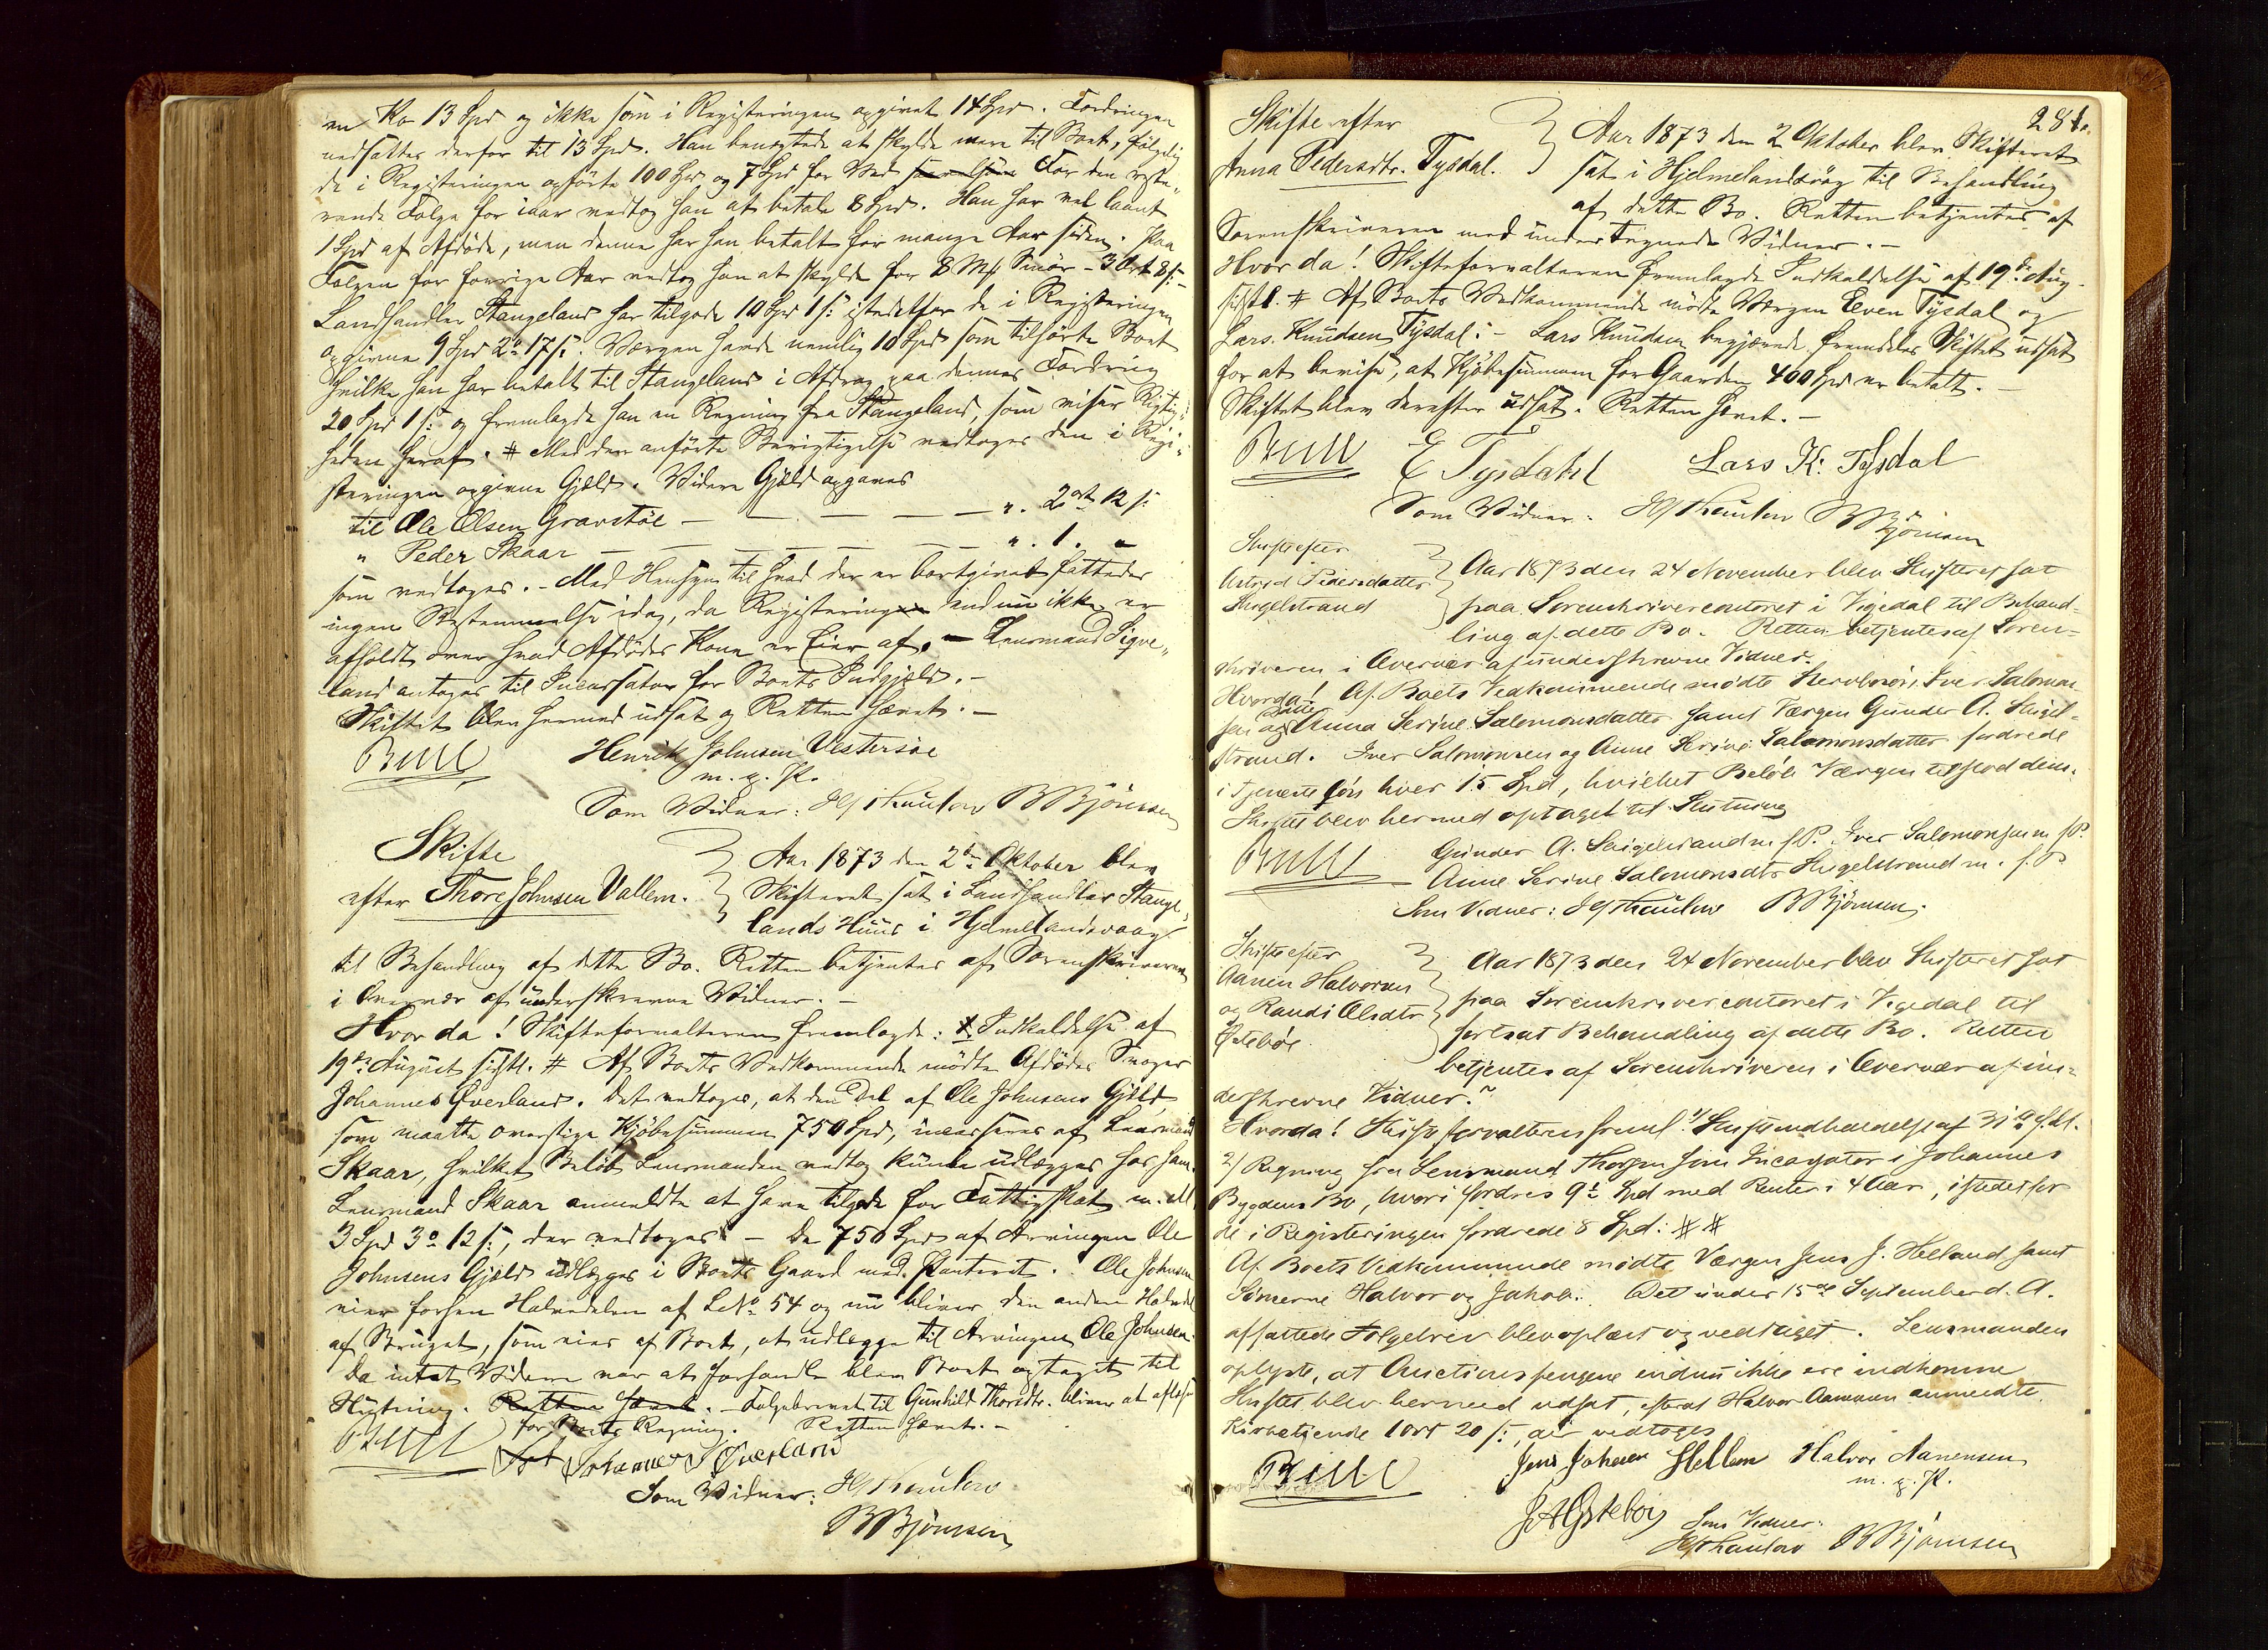 en Ko 13 Spd og ikke som i Registeringen opgivet 14 Spd. Fordringen
nedsattes derfor til 13 Spd. Han benegtede at skylde mere til Boet, følgelig
de i Registeringen opførte 100 Spd og 7 Spd for Ved For den reste-
rende Folge for iaar vedtog han at betale 8 Spd. Han har vel laant
1 Spd af Afdøde, men denne har han betalt for mange Aar siden. Paa
Folgen for forrige Aar vedtog han at skylde for 8 Mk Smør - 3 Ort 8 s: -
Landhandler Stangeland har tilgode 10 Spd 1 s: istedetfor de i Registeringen
opgivne 9 Spd 2 o 17 s:. Værgen havde nemlig 10 Spd som tilhørte Boet
hvilke han har betalt til Stangeland i Afdrag paa dennes Fordring
20 Spd 1 s: og fremlagde han en Regning fra Stangeland, som viser Rigtig-
heden heraf. # Med den anførte Berigtigelse vedtoges den i Regi-
steringen opgivne Gjæld. Videre Gjæld opgaves
til Ole Olsen Gravstöl — — — — — ". 2 ort 12 s:
" Peder Skaar — — — — — — ". 1. "
som vedtoges. - Med Hensyn til hvad der er bortgivet fattedes
ingen Bestemmelse idag, da Registeringen endnu ikke er
afholdt over hvad Afdødes Kone er Eier af. — Lensmand Sigve-
land antoges til Incassator for Boets Indgjæld. -
Skiftet blev hermed udsat og Retten hævet. -
Bull Henrik Johnsen Vestersöe
m. g. P.
Som Vidner: B Björnsen
Skifte } Aar 1873 den 2den Oktober blev
efter Thore Johnsen Vallem. } Skifteret sat i Landhandler Stange-
lands Huus i Hjelmelandsvaag
til Behandling af dette Bo. Retten betjentes af Sorenskriveren
i Overvær af underskrevne Vidner. -
Hvorda! Skifteforvalteren fremlagde: Indkaldelse af
19de August sidstl. # Af Boets Vedkommende mødte Afdødes Svoger
Johannes Øverland. Det vedtoges, at den Del af Ole Johnsens Gjæld
som maatte overstige Kjöbesummen 750 Spd, incasseres af Lensmand
Skaar, hvilket Beløb Lensmanden vedtog kunde udlægges hos ham.
Lensmand Skaar anmeldte at have tilgode for Fattigskat m. m.
3 Spd 3 o 12 s:, der vedtoges. - De 750 Spd af Arvingen Ole
Johnsens Gjæld udlægges i Boets Gaard med Panteret. Ole Johnsen
eier forhen Halvdelen af LNo 54 og nu bliver den anden Halvdel
af Bruget, som eies af Boet, at udlægge til Arvingen Ole Johnsen.
Da intet Videre var at forhandle blev Boet optaget til
Slutning. Retten hævet. - Folgebrevet til Gunhild Thoresdtr. bliver at aflæse
for Boets Regning. Retten hævet. -
Bull Johannes Øverland
Som Vidner:
B Björnsen
281.
Skifte efter } Aar 1873 den 2 Oktober blev Skifteret
Anna Pedersdtr. Tysdal. } sat i Hjelmelandsvåg til Behandling
af dette Bo. Retten betjentes af
Sorenskriveren med undertegnede Vidner. -
Hvorda! Skifteforvalteren fremlagde Indkaldelse af 19de Aug.
sidstl. # Af Boets Vedkommende mødte Værgen Even Tysdal og
Lars Knudsen Tysdal: - Lars Knudsen begjærede fremdeles Skiftet udsat
for at bevise, at Kjøbesummen for Gaarden 400 Spd er betalt. -
Skiftet blev derefter udsat. Retten hævet. -
Bull E Tysdahl Lars K: Tysdal
Som Vidner: B Björnsen
Skifte efter } Aar 1873 den 24 November blev Skifteret sat
Astrid Pedersdatter } paa Sorenskrivercontoret i Vigedal til Behand-
Skigelstrand } ling af dette Bo. Retten betjentes af Soren-
skriveren i Overvær af underskrevne Vidner.
Hvorda! Af Boets Vedkommende mødte Stervbosön, Iver Salomon-
sen og Anna Serine Salomonsdatter samt Værgen Gunder A. Skigel-
strand. Iver Salomonsen og Anne Serine Salomonsdatter fordrede
i Tjenerlön hver 15 Spd, hvilket Beløb Værgen tilstod dem.
Skiftet blev hermed optaget til Slutning
Bull Gunder A. Skigelstrand m. f. P. Iver Salomonsen m f P.
Anne Serine Salomonsdtr Skigelstrand m. f. P
Som Vidner: B Björnsen.
Skifte efter } Aar 1873 den 24 November blev Skifteret sat
Aanen Halvorsen } paa Sorenskrivercontoret i Vigedal til
og Randi Olsdtr } fortsat Behandling af dette Bo. Retten
Østebøe } betjentes af Sorenskriveren i Overvær af un-
derskrevne Vidner.
Hvorda! Skifteforvalteren freml. 1/ Skifteindkaldelse af 31te f. M.
2/ Regning fra Lensmand Thorsen som Incassator i Johannes
Bygdens Bo, hvori fordres 9½ Spd med Renter i 4 Aar, istedetfor
de i Registeringen fordrede 8 Spd: # #
Af Boets Vedkommende mødte Værgen Jens J. Helland samt
Sönnerne Halvor og Jakob. Det under 15de September d. A.
affattede Folgebrev blev oplæst og vedtaget. Lensmanden
oplyste, at Auctionspengene endnu ikke ere indkomne
Skiftet blev hermed udsat, efterat Halvor Aanensen anmeldte
Kirketiende 1 ort 20 s:, der vedtoges
Bull Jens Johnsen Hellem Halvor Aanensen
m. g. P.
J A Østeböe Som Vidner:
B Björnsen